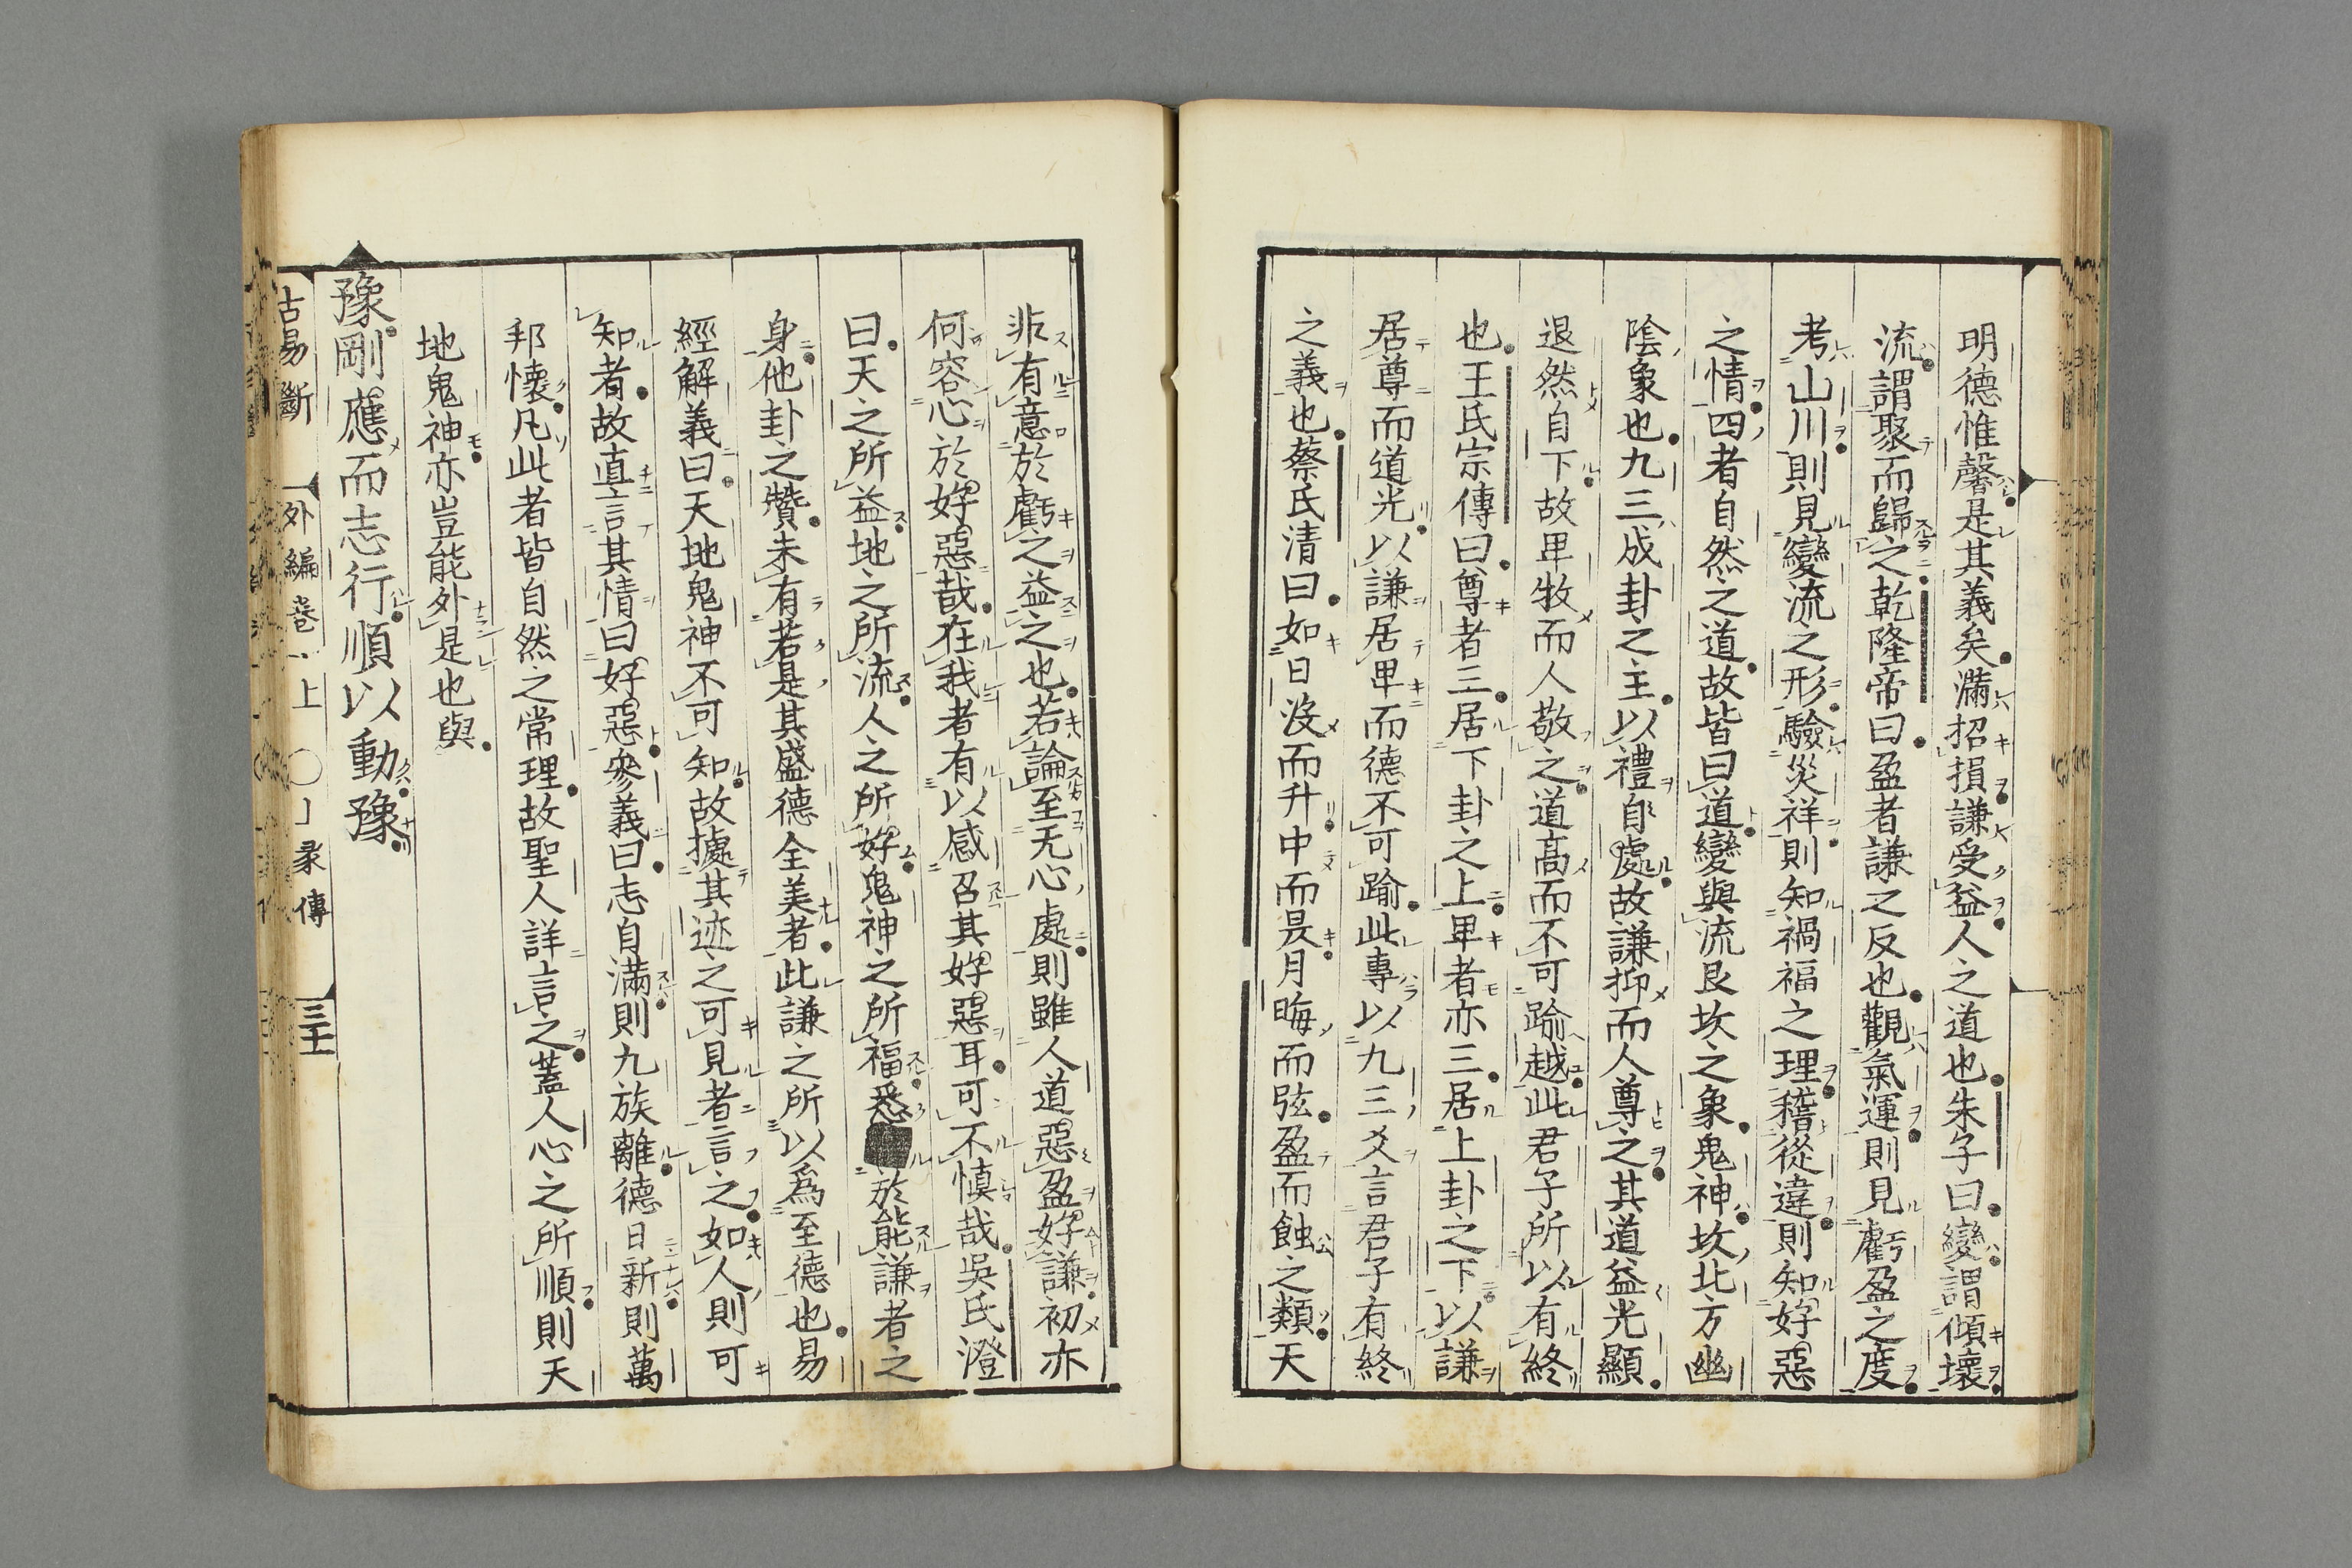 明德惟馨是其義矣滿招損謙受益人之道也朱子曰變謂傾壞
流謂聚而歸之乾隆帝曰盈者謙之反也觀氣運則見虧盈之度
考山川則見變流之形驗災祥則知禍福之理稽從違則知好惡
之情四者自然之道故皆曰道變與流艮坎之象鬼神坎北方幽
陰象也九三成卦之主以禮自處故謙抑而人尊之其道益光顯
退然自下故卑牧而人敬之道高而不可踰越此君子所以有終
也王氏宗傳曰尊者三居下卦之上卑者亦三居上卦之下以謙
居尊而道光以謙居卑而德不可踰此專以九三爻言君子有終
之義也蔡氏清曰如日沒而升中而昃月晦而弦盈而蝕之類天
非有意於虧之益之也若論至无心處則雖人道惡盈好謙初亦
何容心於好惡哉在我者有以感召其好惡耳可不慎哉吳氏澄
曰天之所益地之所流人之所好鬼神之所福悉於能謙者之
身他卦之贊未有若是其盛德全美者此謙之所以爲至德也易
經解義曰天地鬼神不可知故據其迹之可見者言之如人則可
知者故直言其情曰好惡參義曰志自滿則九族離德日新則萬
邦懷凡此者皆自然之常理故聖人詳言之蓋人心之所順則天
地鬼神亦豈能外是也與
豫剛應而志行順以動豫
古易斷 外編卷上 ○彖傳 三十一